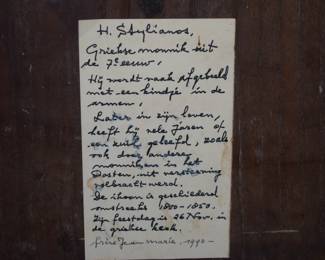 H. Stylianos,
Griekse monnik uit
de 7e eeuw,
Hij wordt vaak afgebeeld
met een kindje in de
armen,
Later in zijn leven,
heeft hij vele jaren op
een zuil geleefd, zoals
ook door andere
monniken in het
Oosten, uit versterving
volbracht werd.
De ikoon is geschilderd
omstreeks 1800-1850.
Zijn feestdag is 26 Nov, in
de griekse kerk.
frère Jean marie. 1990-